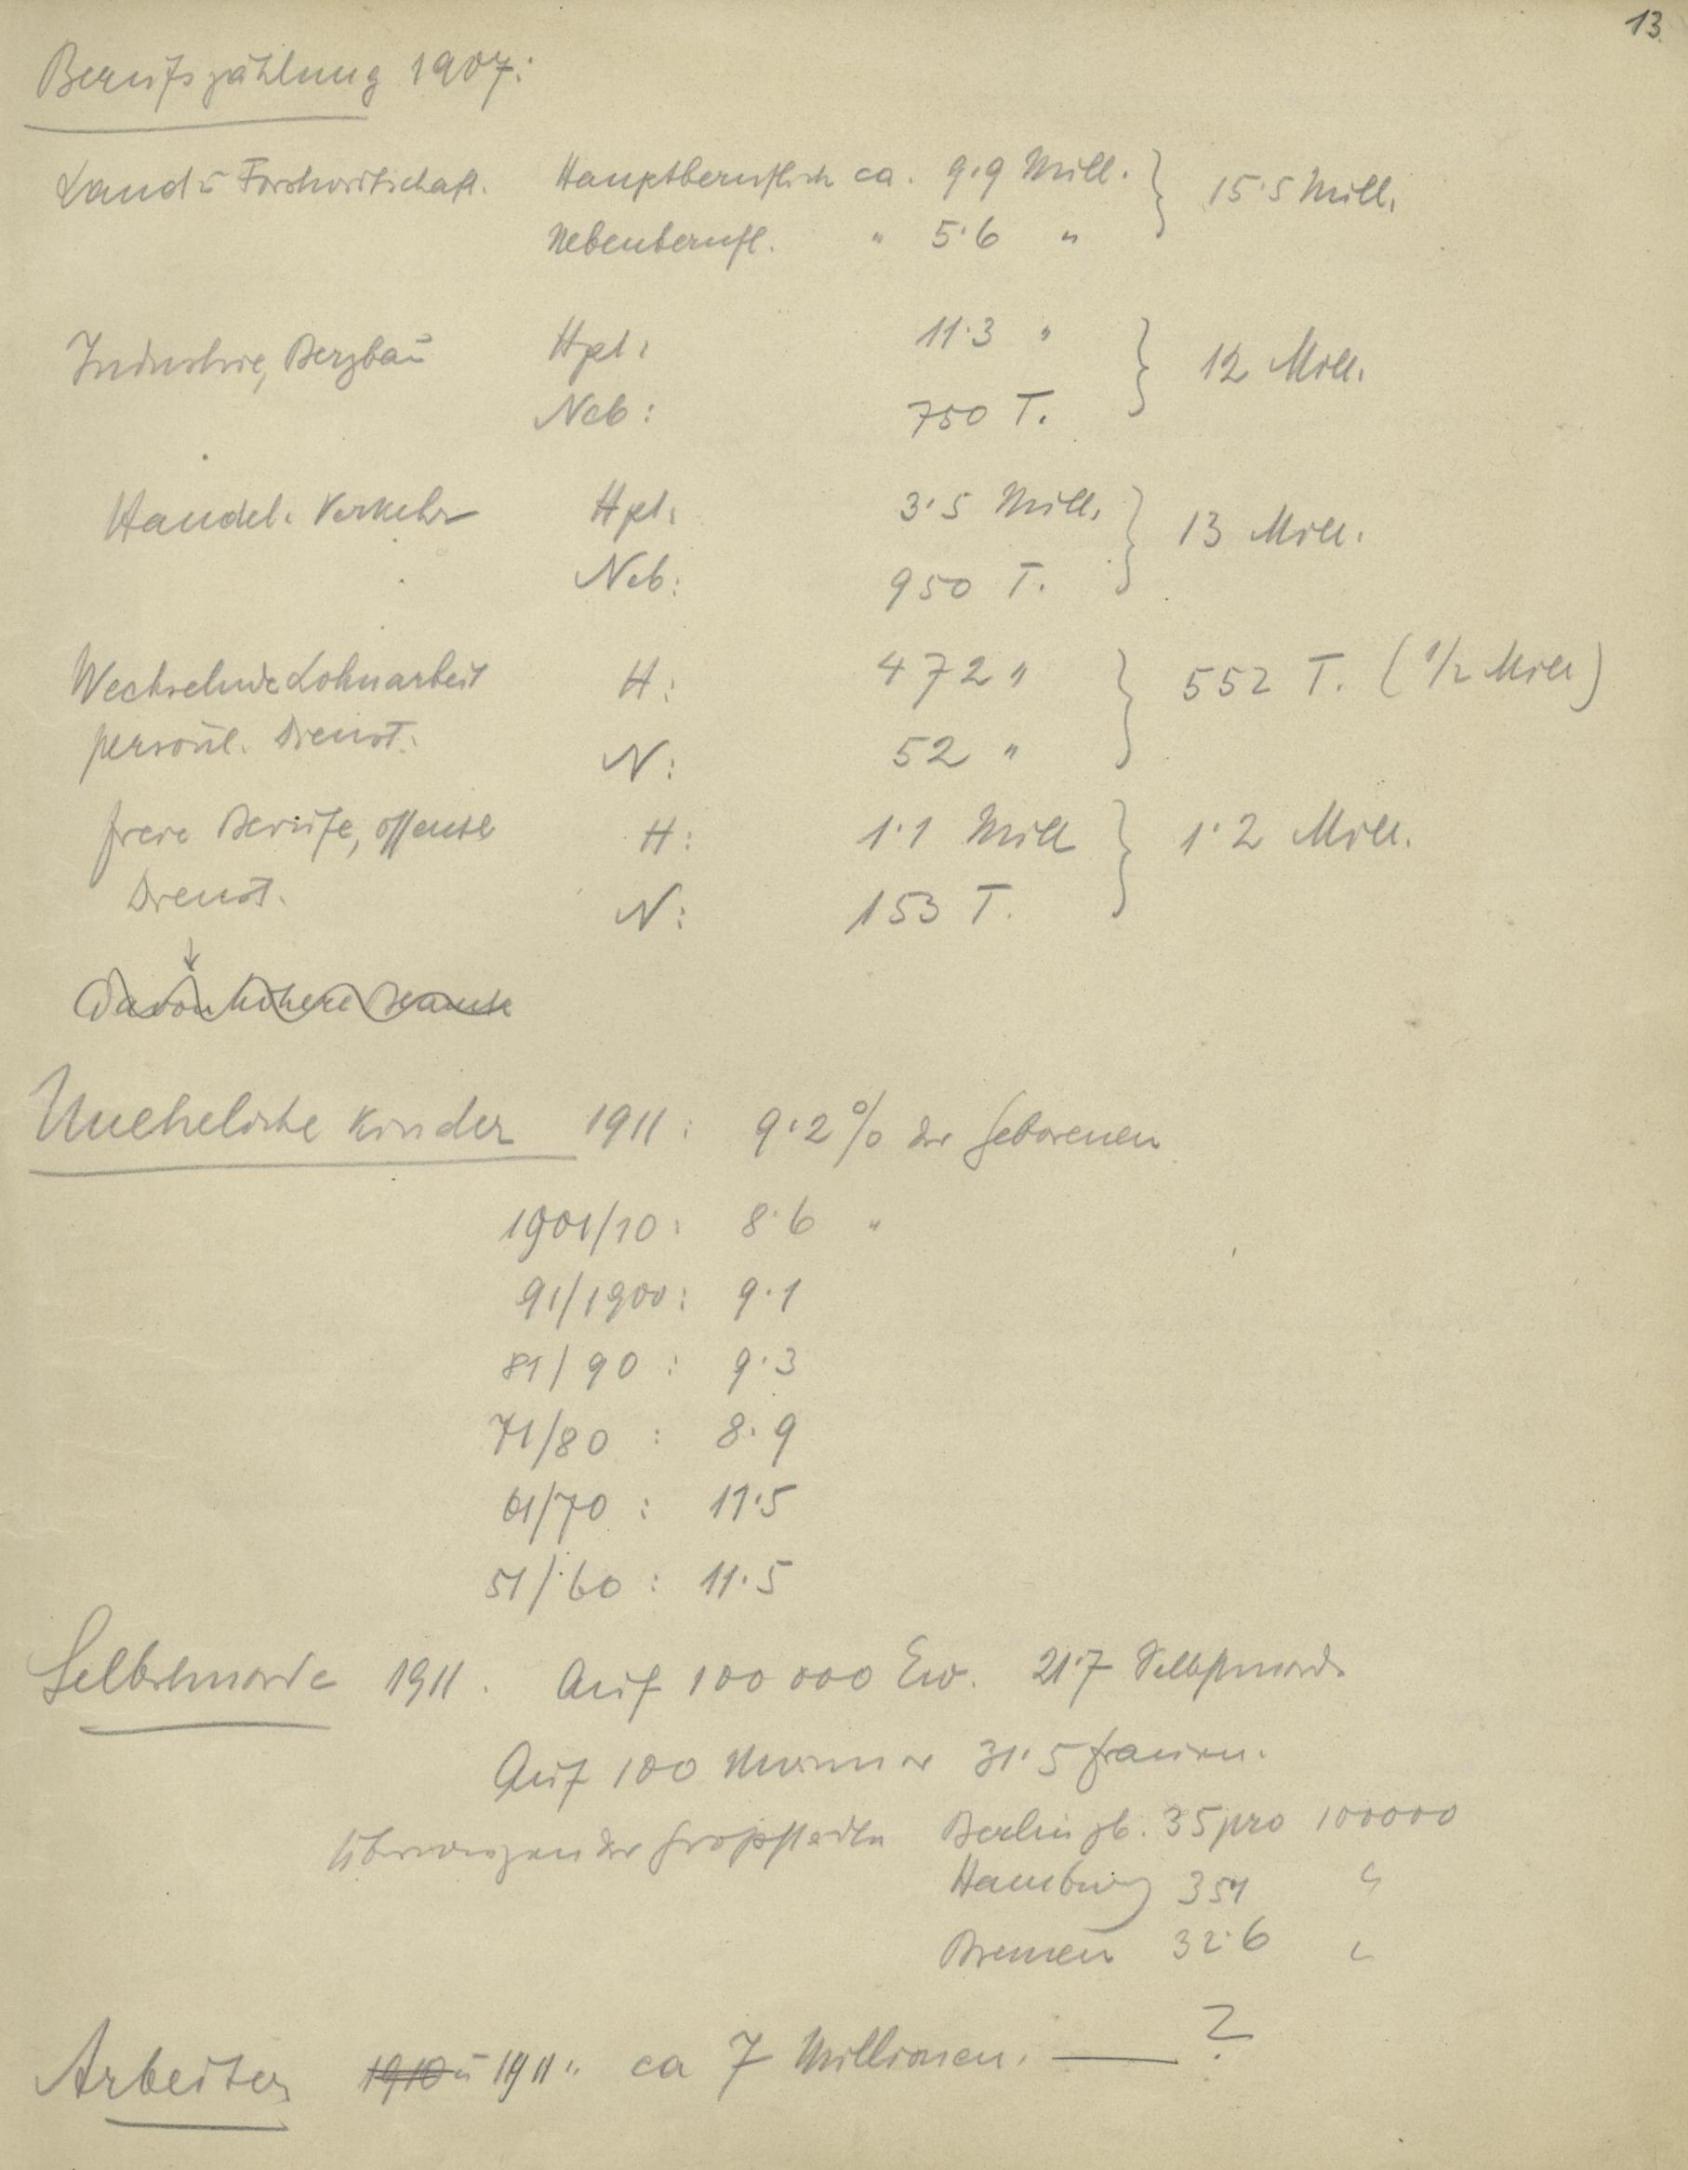 13.
Berufszählung 1907:
Land u Forstwirtschaft. Hauptberuflich ca. 9.9 Mill. } 15.5 Mill.
Nebenberufl. " 5.6 "
Industrie, Bergbau Hpt: 11.3 " } 12 Mill.
Neb: 750 T.
Handel. Verkehr Hpt. 3.5 Mill. } 13 Mill.
Neb: 950 T.
Wechselnde Lohnarbeit H: 472 " } 552 T. (1/2 Mill)
persönl. Dienst. N: 52 "
freie Berufe, öffentl H: 1.1 Mill } 1.2 Mill.
Dienst. N: 153 T.
Davon höhere Beamte
Uneheliche Kinder 1911: 9.2% der Geborenen
1901/10: 8.6 "
91/1900: 9.1
81/90: 9.3
71/80: 8.9
61/70: 11.5
51/60: 11.5
Selbstmorde 1911. Auf 100 000 Ew. 21.7 Selbstmorde
Auf 100 Männer 31.5 Frauen.
Überwiegen der Großstädte Berlin zb. 35 pro 100000
Hamburg 351 "
Bremen 32.6 "
Arbeiter 1910 u 1911" ca 7 Millionen. — ?